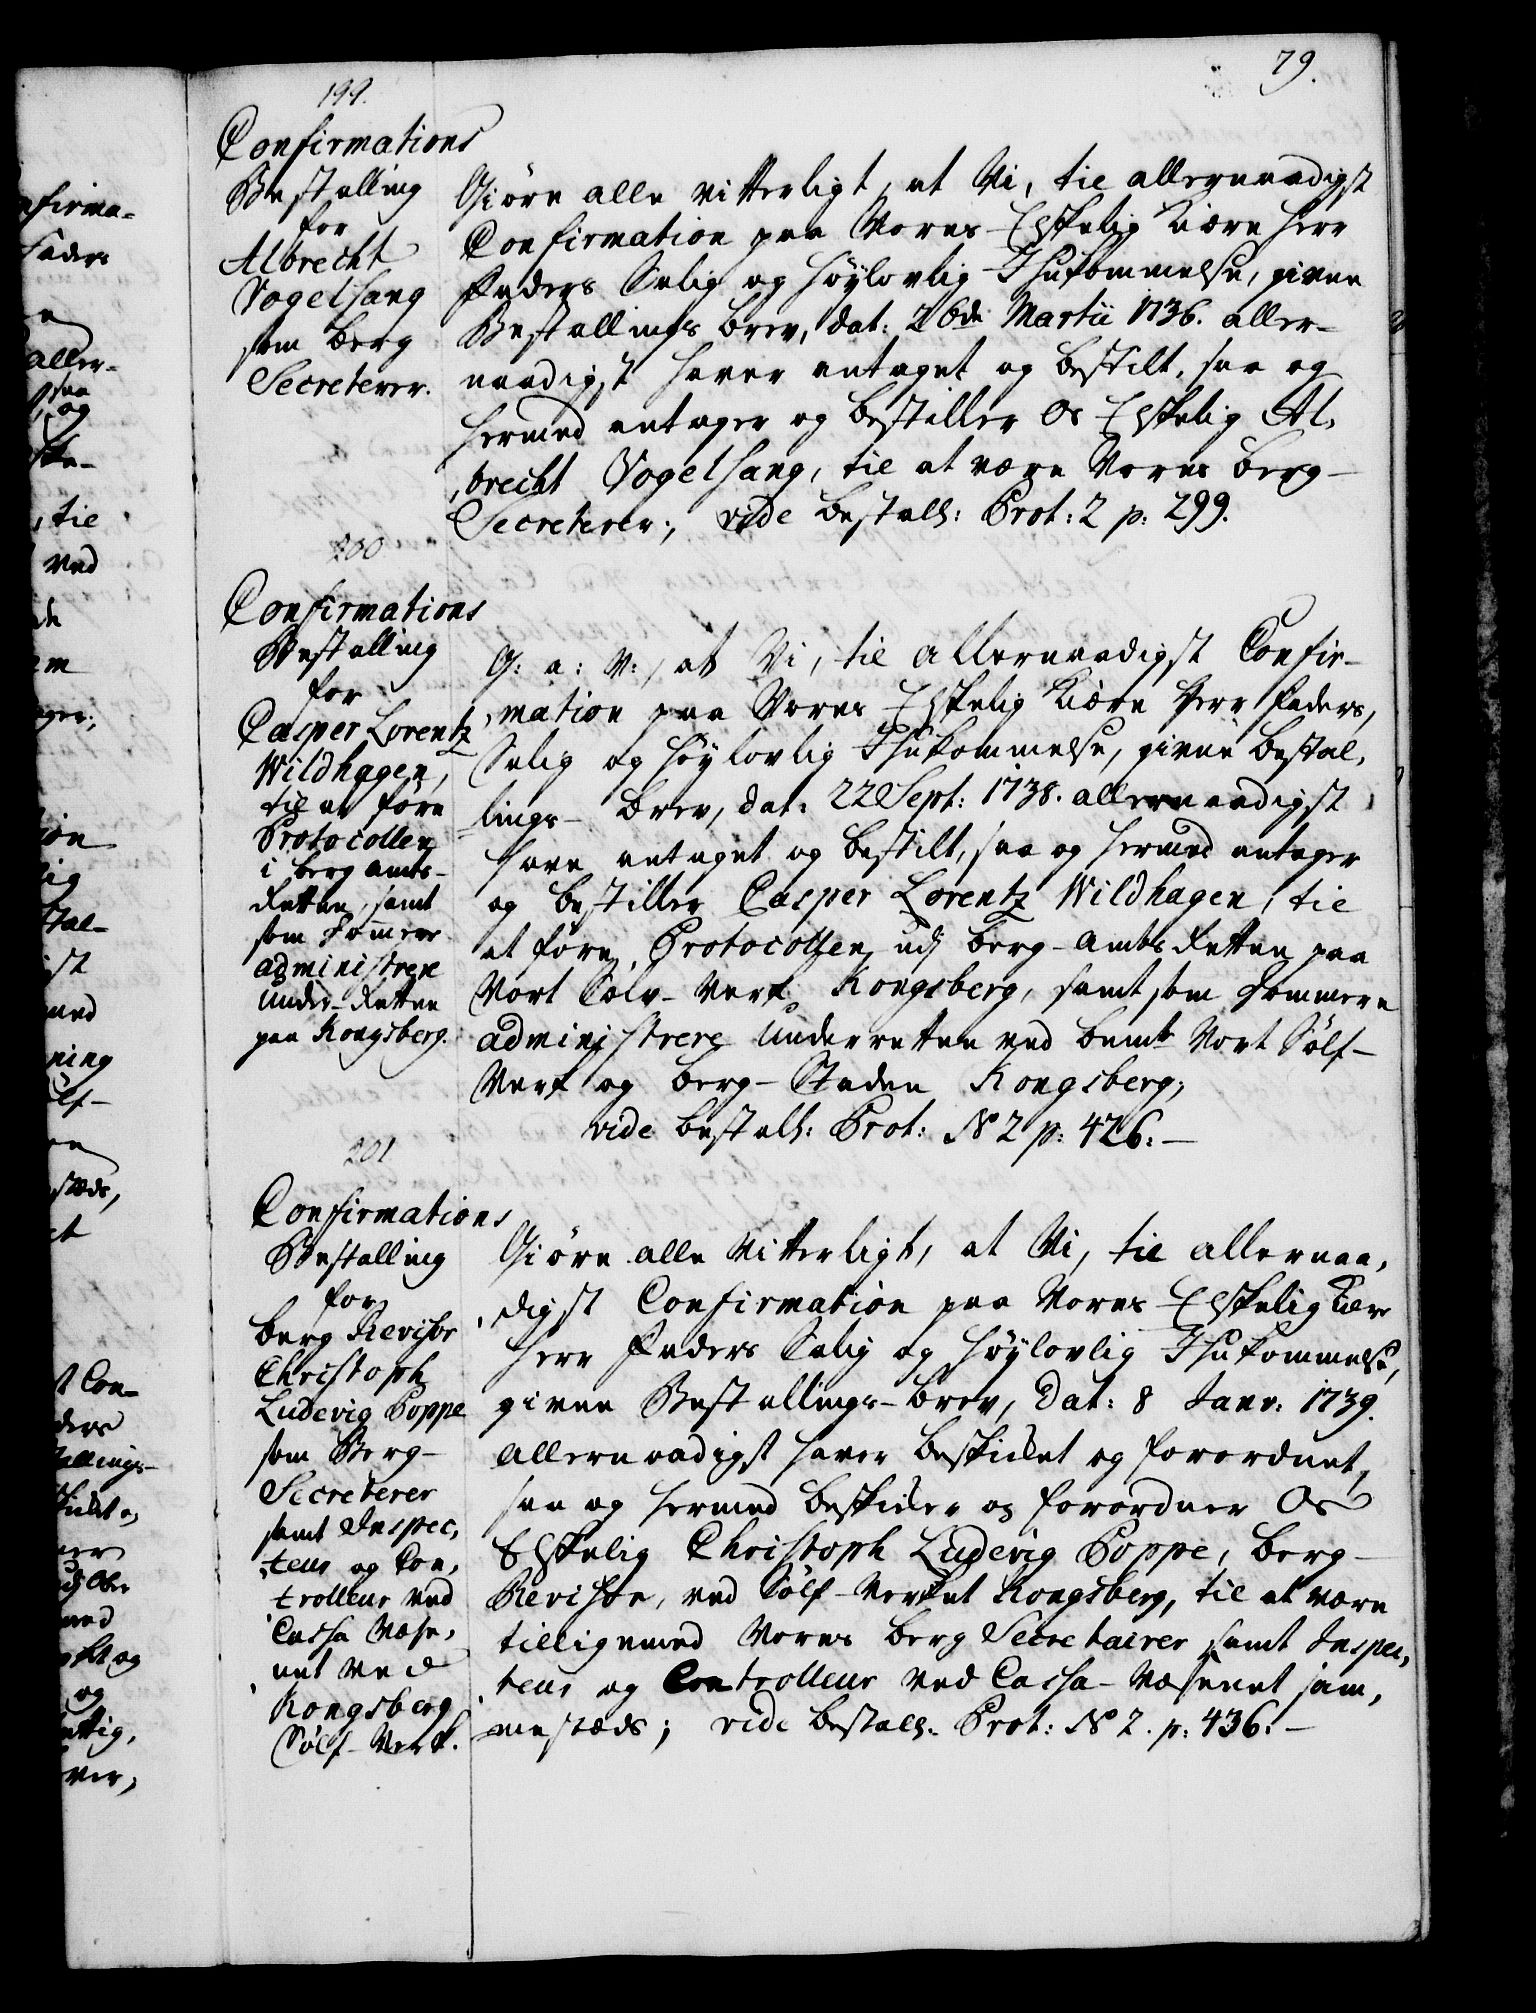 79.
199.
Confirmations
Bestalling
for
Albrecht
Vogelsang
som Berg
Secreterer.
Giöre alle vitterligt, at Vi, til allernaadigst
Confirmation paa Vores Elskelig Kiære Herr
Faders Salig og Höylovlig Ihukommelse, givne
Bestallings Brev, dat: 26de Martii 1736. aller-
naadigst haver antaget og bestilt, saa og
hermed antager og bestiller Os Elskelig Al,
,brecht Vogelsang, til at være Vores Berg-
Secreterer; vide Bestall: Prot: 2 p: 299.
200
Confirmations
Bestalling
for
Casper Lorentz
Wildhagen,
til at före
Protocollen
i Berg Amts-
Retten, samt
som Dommere
administrere
Under-Retten
paa Kongsberg.
G: a: V:, at Vi, til allernaadigst Confir-
,mation paa Vores Elskelig Kiære Herr Faders,
Salig og Höylovlig Ihukommelse, givne Bestal,
lings- Brev, dat: 22 Sept: 1738. allernaadigst
have antaget og bestilt, saa og hermed antager
og bestiller Casper Lorentz Wildhagen, til
at före Protocollen udj Berg-Amts Retten paa
Vort Sölv-Verk Kongsberg, samt som Dommere
administrere Underretten ved bemte Vort Sölf-
Verk og Berg-Staden Kongsberg;
vide Bestall: Prot: No 2 p: 426.-
201
Confirmations
Bestalling
for
Berg Revisor
Christoph
Ludevig Poppe
som Berg-
Secreterer
samt Inspec,
,teur og Con,
trolleur ved
Cassa Væse,
net ved
Kongsberg
Sölf-Verk.
Giöre alle Vitterligt, at Vi, til allernaa,
,digst Confirmation paa Vores Elskelig Kiære
Herr Faders Salig og Höylovlig Ihukommelse,
givne Bestallings-Brev, Dat: 8 Janr: 1739.
allernaadigst haver beskicket og forordnet,
saa og hermed beskicker og forordner Os
Elskelig Christoph Ludevig Poppe, Berg-
Revisor, ved Sölf-Verket Kongsberg, til at være
tilligemed Vores Berg Secretairer samt Inspec,
,teur og Controlleur ved Cassa-Væsenet sam,
mestæds; vide Bestall: Prot: No 2. p: 436.-